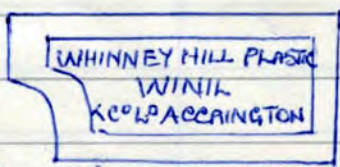 WHINNEY HILL PLASTIC
WINIL
K Cº Lº ACCRINGTON